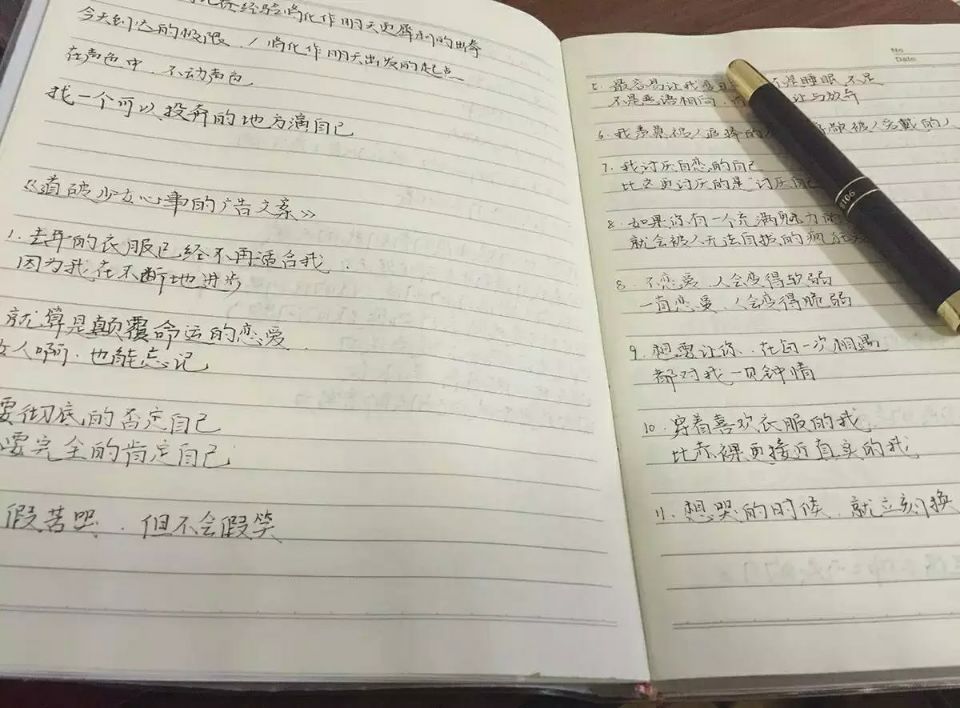 经验消化作明天更犀利的出击
今天到达的极限 / 消化作明天出发的起点
在声色中.不动声色
找一个可以投奔的地方演自己
《道破少女心事的广告文案》
1. 去年的衣服已经不再适合我.
因为我在不断地进步
就算是颠覆命运的恋爱
女人啊,也能忘记
要彻底的否定自己
要完全的肯定自己
假苦哭.但不会假笑
No
Date
5. 最容易让我 睡眠不足
不是恶语相向 让与放弃
6. 我羡慕被人 被人 的人
7. 我讨厌自恋的自己
比这更讨厌的是"讨厌自己
8. 如果你有一个充满魅力
就会被人无法自拔的疯狂
8. 不恋爱.人会变得软弱
一直恋爱.人会变得脆弱
9. 想要让你.在每一次相遇
都对我一见钟情
10. 穿着喜欢衣服的我.
比赤裸更接近真实的我
11. 想哭的时候.就立刻换
9016